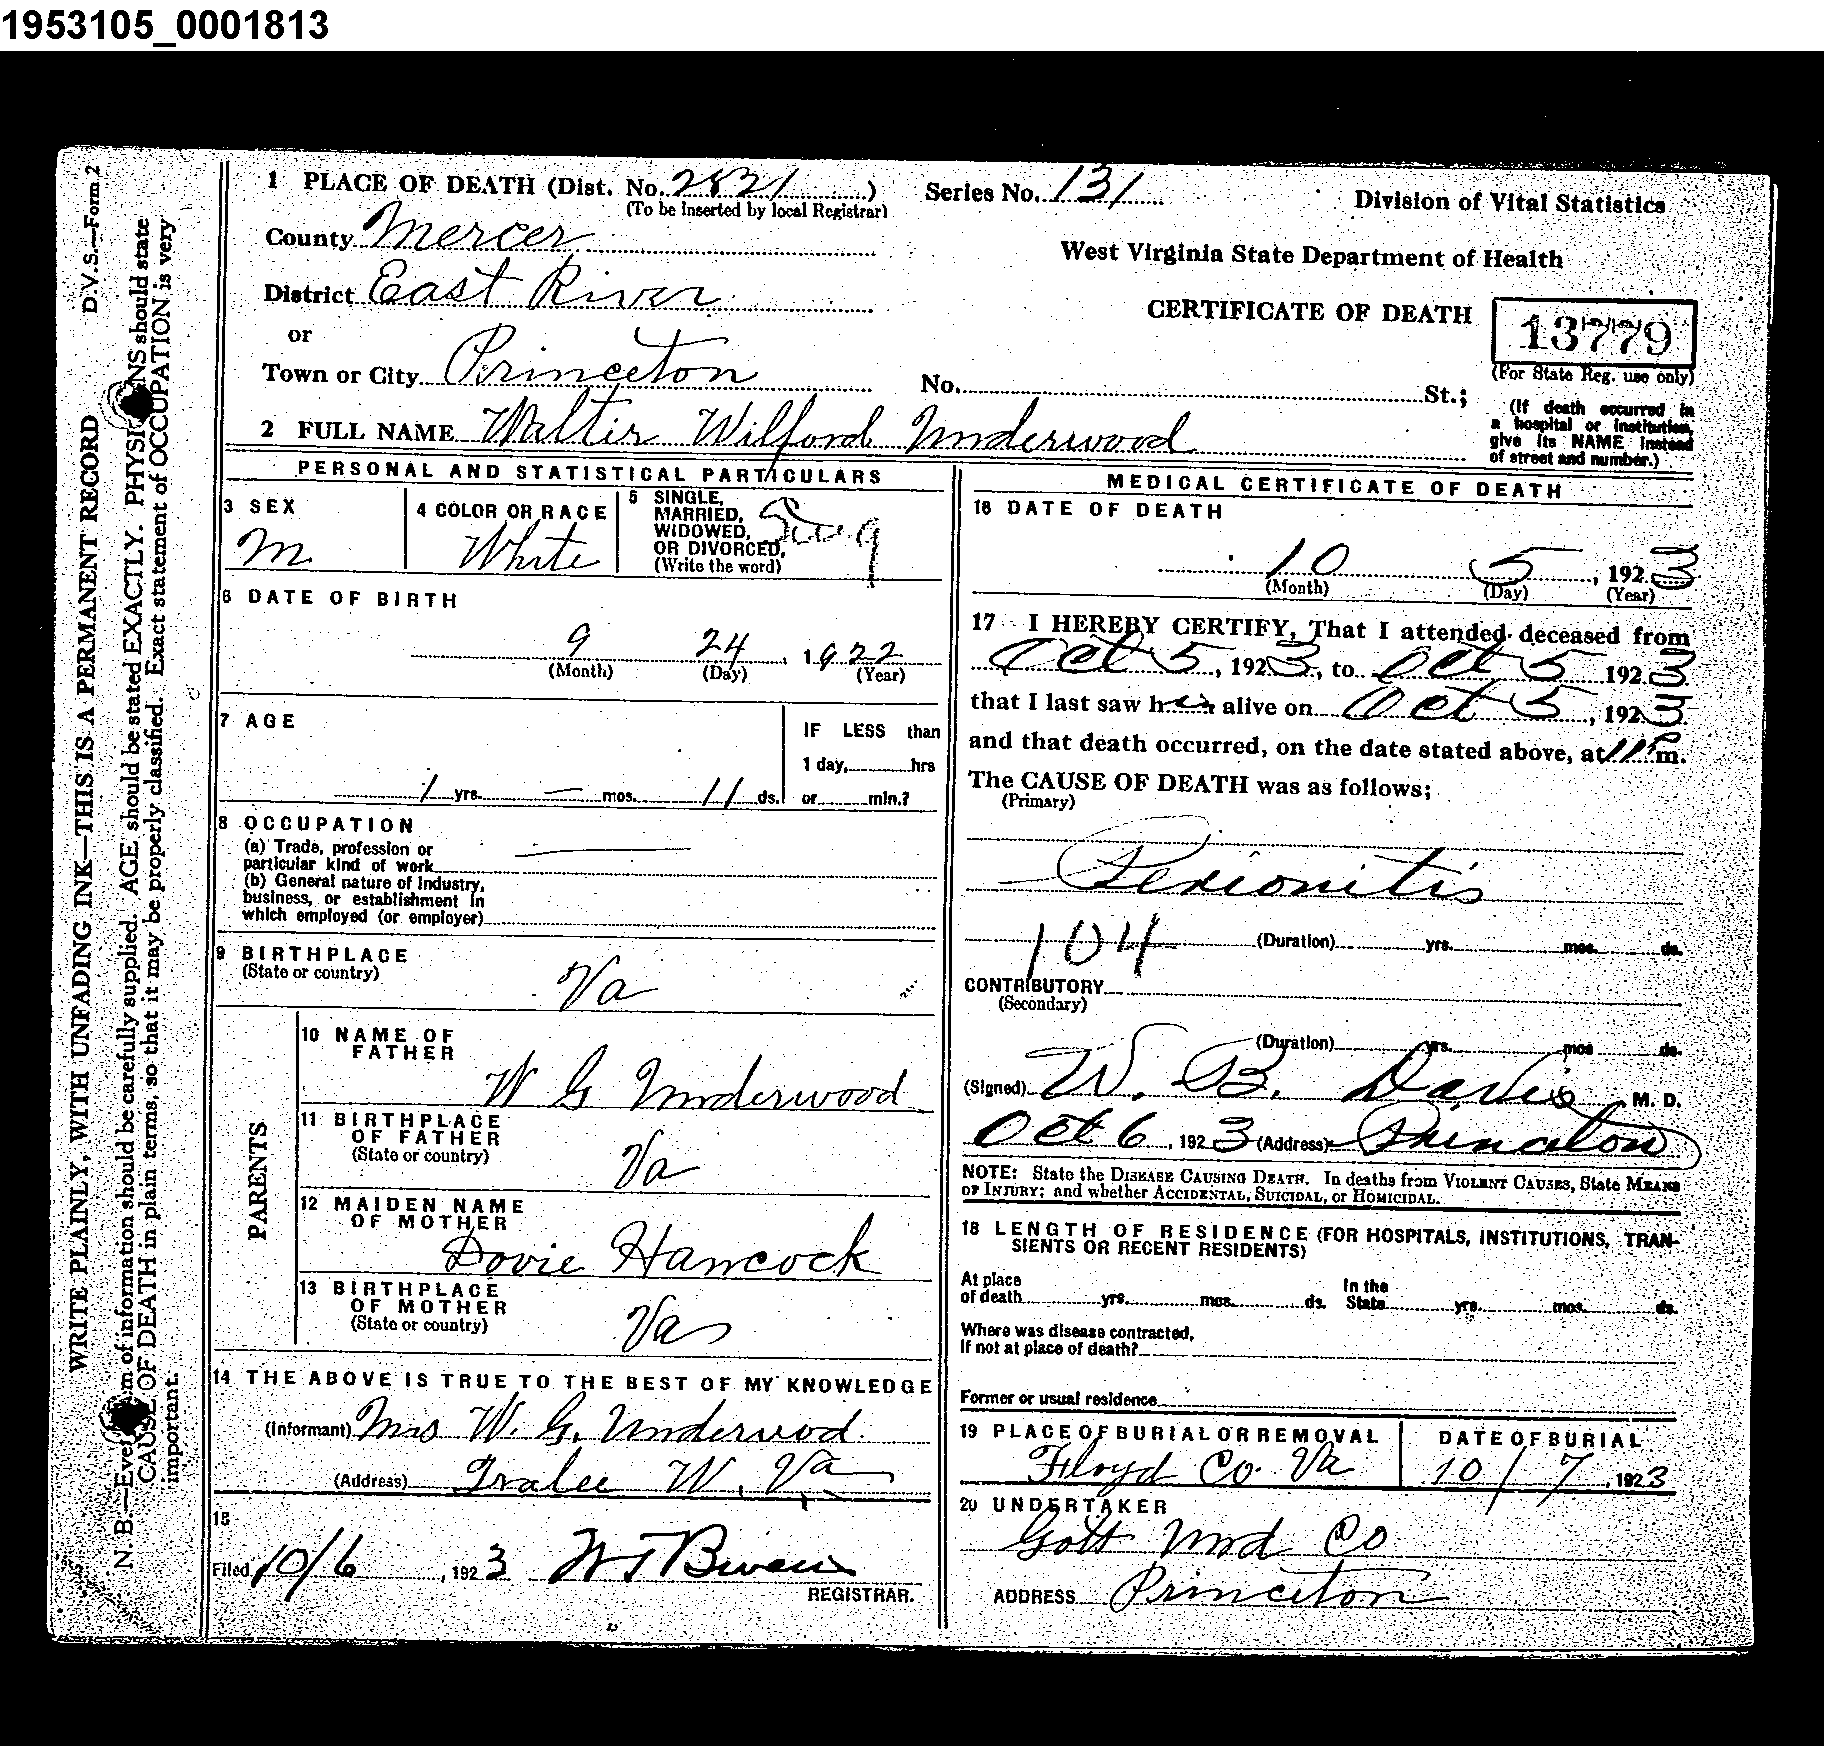 1953105_0001813
D.V.S.—Form 2
WRITE PLAINLY, WITH UNFADING INK—THIS IS A PERMANENT RECORD
N. B.—Every item of information should be carefully supplied. AGE should be stated EXACTLY. PHYSICIANS should state
CAUSE OF DEATH in plain terms, so that it may be properly classified. Exact statement of OCCUPATION is very
important.
1 PLACE OF DEATH (Dist. No. 2821)
(To be inserted by local Registrar)
Series No. 131
Division of Vital Statistics
County Mercer
West Virginia State Department of Health
District East River
CERTIFICATE OF DEATH
13779
(For State Reg. use only)
or
Town or City Princeton No. St.;
(If death occurred in
a hospital or institution,
give its NAME instead
of street and number.)
2 FULL NAME Walter Wilford Underwood
PERSONAL AND STATISTICAL PARTICULARS
3 SEX
M
4 COLOR OR RACE
White
5 SINGLE,
MARRIED,
WIDOWED,
OR DIVORCED,
(Write the word)
6 DATE OF BIRTH
9 24, 1922
(Month) (Day) (Year)
7 AGE
1 yrs. — mos. 11 ds.
IF LESS than
1 day, hrs
or min.?
8 OCCUPATION
(a) Trade, profession or
particular kind of work
(b) General nature of Industry,
business, or establishment in
which employed (or employer)
9 BIRTHPLACE
(State or country)
Va
PARENTS
10 NAME OF
FATHER
W G Underwood
11 BIRTHPLACE
OF FATHER
(State or country)
Va
12 MAIDEN NAME
OF MOTHER
Dovie Hancock
13 BIRTHPLACE
OF MOTHER
(State or country)
Va
14 THE ABOVE IS TRUE TO THE BEST OF MY KNOWLEDGE
(Informant) Mrs W. G. Underwood
(Address) Tralee W. Va
15
Filed 10/6, 1923
REGISTRAR.
MEDICAL CERTIFICATE OF DEATH
16 DATE OF DEATH
10 5, 1923
(Month) (Day) (Year)
17 I HEREBY CERTIFY, That I attended deceased from
Oct 5, 1923, to Oct 5 1923
that I last saw h alive on Oct 5, 1923
and that death occurred, on the date stated above, at 11 P m.
The CAUSE OF DEATH was as follows;
(Primary)
Perionitis
104 (Duration) yrs. mos. ds.
CONTRIBUTORY
(Secondary)
(Duration) yrs. mos ds.
(Signed) W. B. Davis M. D.
Oct 6, 1923 (Address) Princeton
NOTE: State the DISEASE CAUSING DEATH. In deaths from VIOLENT CAUSES, State MEANS
OF INJURY; and whether ACCIDENTAL, SUICIDAL, or HOMICIDAL.
18 LENGTH OF RESIDENCE (FOR HOSPITALS, INSTITUTIONS, TRAN-
SIENTS OR RECENT RESIDENTS)
At place
of death yrs. mos. ds.
In the
State yrs. mos. ds.
Where was disease contracted,
If not at place of death?
Former or usual residence
19 PLACE OF BURIAL OR REMOVAL
Floyd Co. Va
DATE OF BURIAL
10/7, 1923
20 UNDERTAKER
Gott Und Co
ADDRESS Princeton